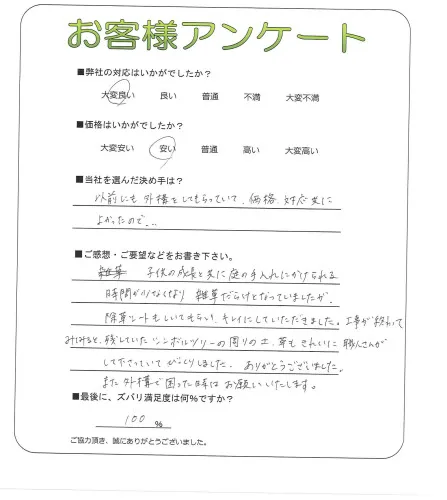 お客様アンケート
■弊社の対応はいかがでしたか?
大変良い 良い 普通 不満 大変不満
■価格はいかがでしたか?
大変安い 安い 普通 高い 大変高い
■当社を選んだ決め手は?
以前にも外構をしてもらっていて、価格、対応共に
よかったので...
■ご感想・ご要望などをお書き下さい。
雑草 子供の成長と共に庭の手入れにかけられる
時間が少なくなり 雑草だらけとなっていましたが、
除草シートもしいてもらい、キレイにしていただきました。工事が終わって
みてみると、残していたシンボルツリーの周りの土、草もきれいに職人さんが
して下さっていてびっくりしました。ありがとうございました。
また外構で困った時はお願いいたします。
■最後に、ズバリ満足度は何%ですか?
100 %
ご協力頂き、誠にありがとうございました。